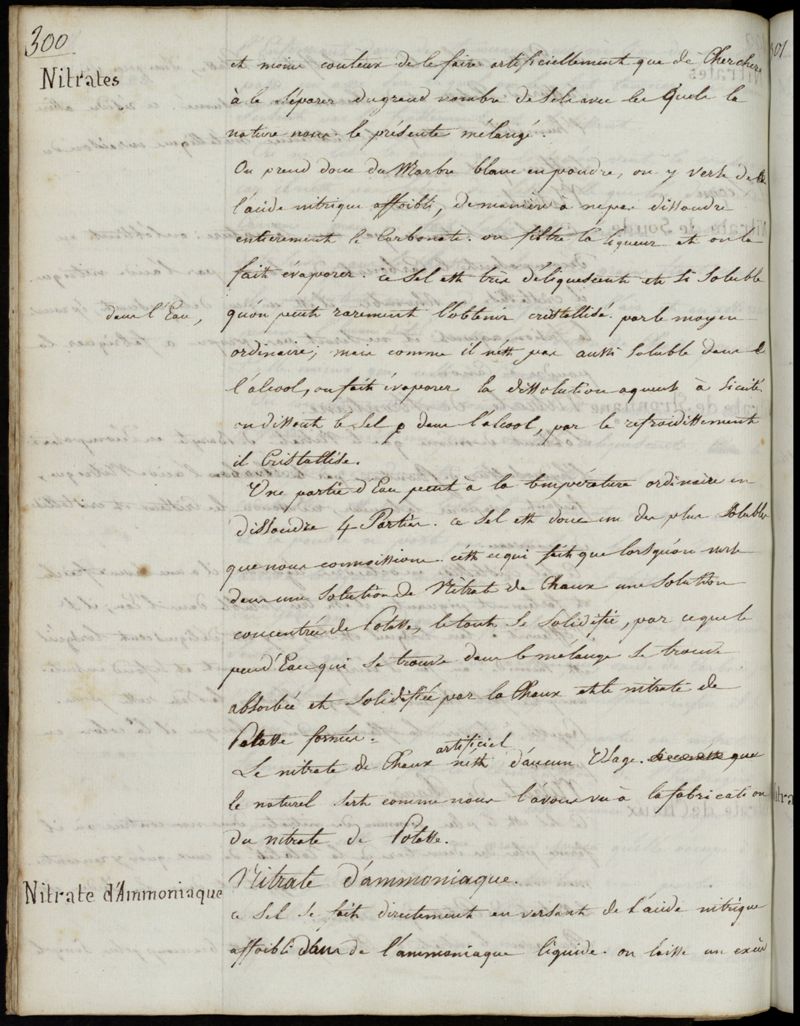 300
Nitrates
et moins couteux de le faire artificiellement que de Chercher
à le Séparer du grand nombre de Sels avec les Quels la
nature nous le présente mélangé.
On prend donc du Marbre blanc en poudre, on y verse de
l'acide nitrique affoibli, de maniere a ne pas dissoudre
entierement le Carbonate. on filtre la liqueur et on la
fait évaporer. ce sel est très déliquescent et si Soluble
dans l'Eau,
qu'on peut rarement l'obtenir cristallisé par le moyen
ordinaire; mais comme il n'est pas aussi Soluble dans
l'alcool, on fait évaporer la dissolution aqueuse à Siccité
on dissout le Sel dans l'alcool, par le refroidissement
il Cristallise.
Une partie d'Eau peut à la température ordinaire en
dissoudre 4 Parties. ce Sel est donc un des plus Solubles
que nous connoissions. c'est ce qui fait que lorsqu'on verse
dans une Solution de Nitrate de Chaux une Solution
concentrée de Potasse, le tout se Solidifie, par ce que le
peu d'Eau qui se trouve dans le mélange se trouve
absorbée et Solidifiée par la Chaux et le nitrate de
Potasse formés.
Le nitrate de Chaux artificiel n'est d'aucun Usage. que
le naturel sert comme nous l'avons vu à la fabrication
du nitrate de Potasse.
Nitrate d'ammoniaque.
Nitrate d'Ammoniaque
ce Sel se fait directement en versant de l'acide nitrique
affoibli dans de l'ammoniaque liquide. on laisse un excès